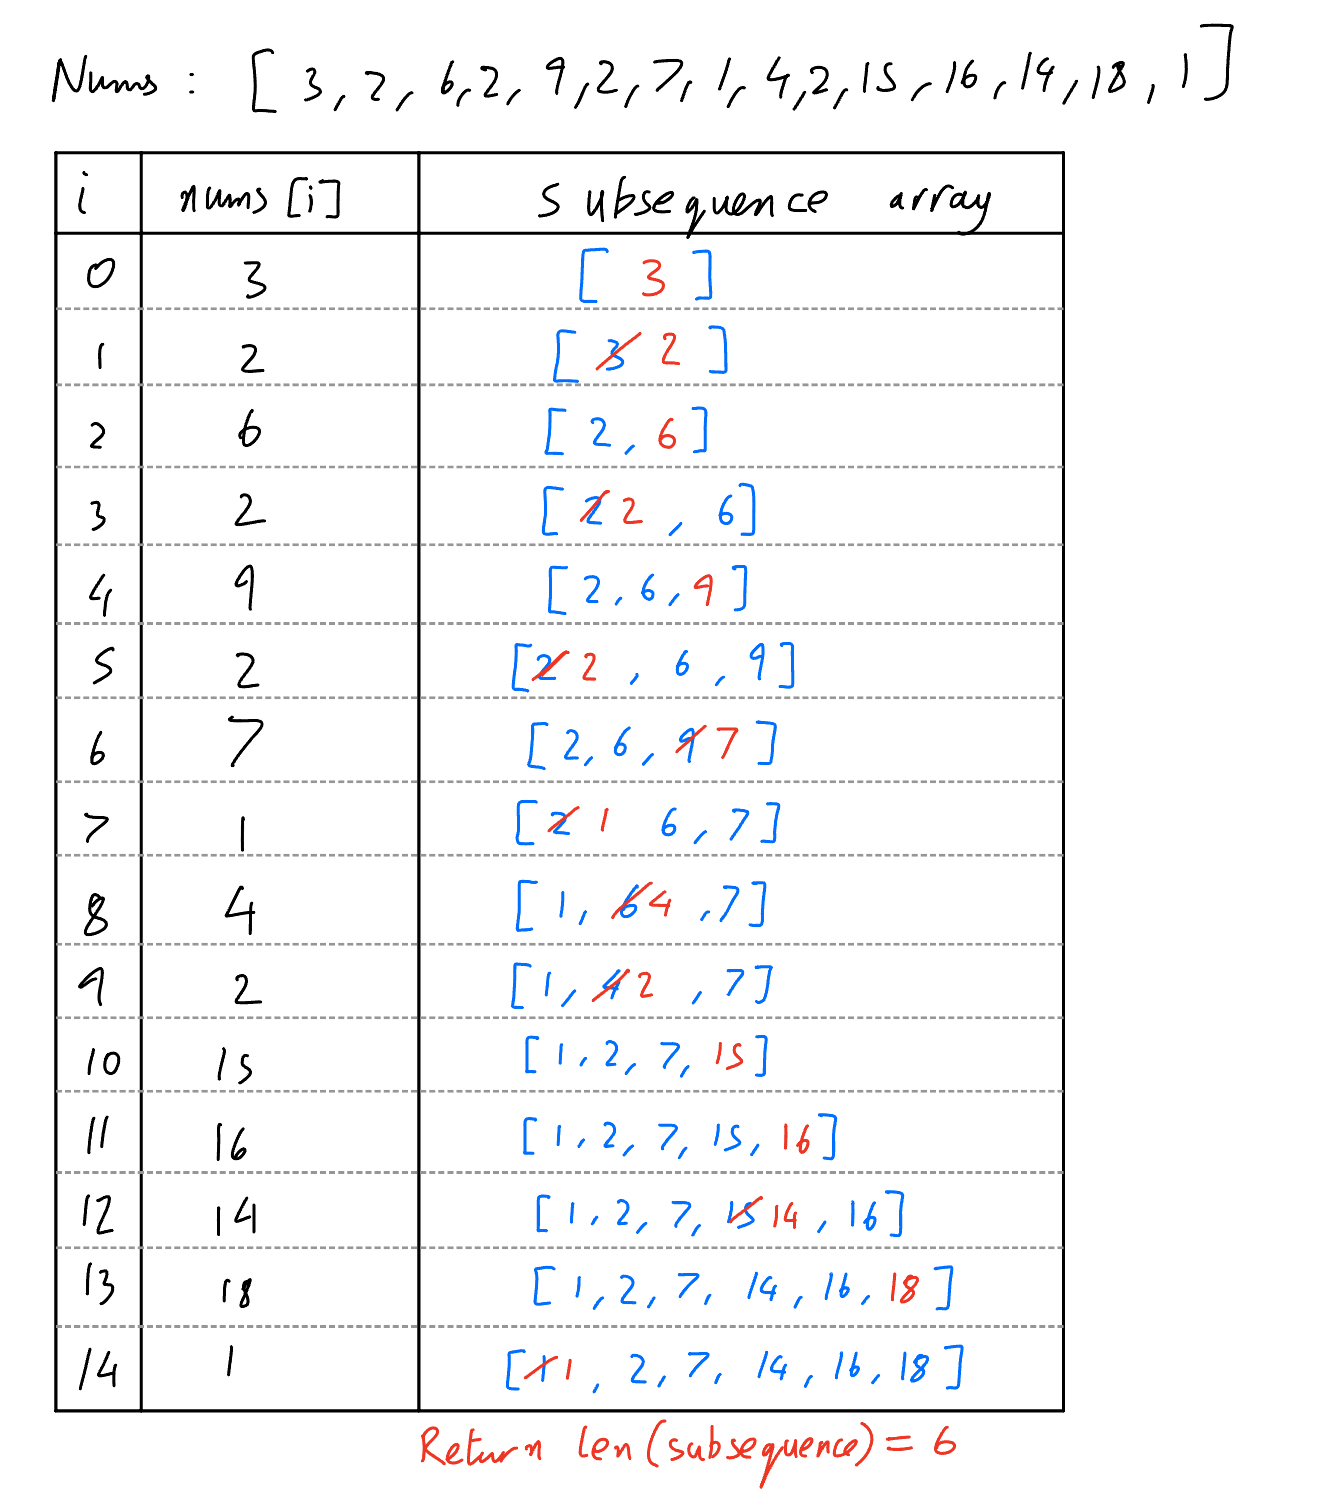 Nums : [ 3, 2, 6, 2, 9, 2, 7, 1, 4, 2, 15, 16, 14, 18, 1 ]
i nums [i] Subsequence array
0 3 [ 3 ]
1 2 [ 3 2 ]
2 6 [ 2, 6 ]
3 2 [ 2 2 , 6 ]
4 9 [ 2, 6, 9 ]
5 2 [ 2 2 , 6 , 9 ]
6 7 [ 2, 6, 9 7 ]
7 1 [ 2 1 6 , 7 ]
8 4 [ 1, 6 4 , 7 ]
9 2 [ 1, 4 2 , 7 ]
10 15 [ 1, 2, 7, 15 ]
11 16 [ 1, 2, 7, 15, 16 ]
12 14 [ 1, 2, 7, 15 14 , 16 ]
13 18 [ 1, 2, 7, 14, 16, 18 ]
14 1 [ 1 1 , 2, 7, 14, 16, 18 ]
Return len (subsequence) = 6